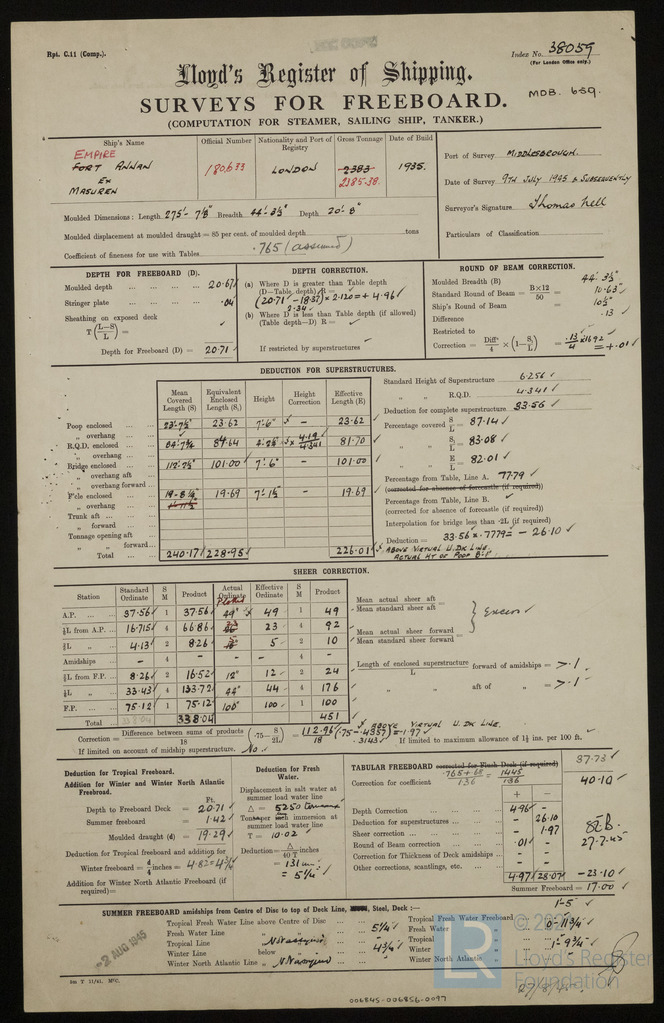 Rpt. C.11 (Comp.).
Index No. 38059
(For London Office only.)
Lloyd's Register of Shipping.
SURVEYS FOR FREEBOARD.
MDB. 659.
(COMPUTATION FOR STEAMER, SAILING SHIP, TANKER.)
Ship's Name Official Number Nationality and Port of Registry Gross Tonnage Date of Build
EMPIRE
FORT ANNAN
EX
MASUREN
180633 LONDON 2383 2385.38. 1935.
Port of Survey MIDDLESBROUGH.
Date of Survey 9TH JULY 1945 & SUBSEQUENTLY
Surveyor's Signature Thomas Nell
Particulars of Classification
Moulded Dimensions: Length 275'- 7⅞" Breadth 44'-3½" Depth 20'-8"
Moulded displacement at moulded draught = 85 per cent. of moulded depth tons
Coefficient of fineness for use with Tables .765 (assumed)
DEPTH FOR FREEBOARD (D).
Moulded depth 20.67
Stringer plate .04
Sheathing on exposed deck
T(L-S/L) =
Depth for Freeboard (D) = 20.71
DEPTH CORRECTION.
(a) Where D is greater than Table depth
(D—Table depth) R =
(20.71 - 18.37) × 2.120 = + 4.96
2.34
(b) Where D is less than Table depth (if allowed)
(Table depth—D) R =
If restricted by superstructures
ROUND OF BEAM CORRECTION.
Moulded Breadth (B) 44'. 3½"
Standard Round of Beam = B×12/50 = 10.63
Ship's Round of Beam = 10½"
Difference .13
Restricted to
Correction = Diff/4 × (1 - S₁/L) = .13/4 × .1692 = + .01
DEDUCTION FOR SUPERSTRUCTURES.
Mean Covered Length (S) Equivalent Enclosed Length (S₁) Height Height Correction Effective Length (E)
Poop enclosed 23'-7½" 23.62 7'-6" — 23.62
„ overhang
R.Q.D. enclosed 84'-7¾" 84.64 4'-2⅜" × 4.19/4.341 81.70
„ overhang
Bridge enclosed 112'-2½" 101.00 7'-6" — 101.00
„ overhang aft
„ overhang forward
F'cle enclosed 19-8¼" 19.69 7'-1½" — 19.69
„ overhang
Trunk aft
„ forward
Tonnage opening aft
„ „ forward
Total 240.17 228.95 226.01
Standard Height of Superstructure 6.256
„ „ R.Q.D. 4.341
Deduction for complete superstructure 33.56
Percentage covered S/L = 87.14
„ „ S₁/L = 83.08
„ „ E/L = 82.01
Percentage from Table, Line A. 77.79
(corrected for absence of forecastle (if required))
Percentage from Table, Line B.
(corrected for absence of forecastle (if required))
Interpolation for bridge less than ·2L (if required)
Deduction = 33.56 × .7779 = - 26.10
ABOVE VIRTUAL U.DK LINE.
ACTUAL HT OF POOP 8'-1"
SHEER CORRECTION.
Station Standard Ordinate S M Product Actual Ordinate Effective Ordinate S M Product
A.P. 37.56 1 37.56 49" 49 1 49
⅙L from A.P. 16.715 4 66.86 23 4 92
⅓L „ 4.13 2 8.26 5 2 10
Amidships - 4 - - - 4 -
⅓L from F.P. 8.26 2 16.52 12" 12 2 24
⅙L „ 33.43 4 133.72 44" 44 4 176
F.P. 75.12 1 75.12 100" 100 1 100
Total 338.04 451
Mean actual sheer aft
Mean standard sheer aft =
Mean actual sheer forward
Mean standard sheer forward =
Excess
Length of enclosed superstructure/L forward of amidships = >.1
„ aft of „ = >.1
Correction = Difference between sums of products/18 (·75 - S/2L) = 112.96/18 (.75 - .4357) = - 1.97
.3143
ABOVE VIRTUAL U.DK LINE.
If limited on account of midship superstructure. No
If limited to maximum allowance of 1½ ins. per 100 ft.
Deduction for Tropical Freeboard.
Addition for Winter and Winter North Atlantic Freeboard.
Ft.
Depth to Freeboard Deck = 20.71
Summer freeboard = 1.42
Moulded draught (d) = 19.29
Deduction for Tropical freeboard and addition for
Winter freeboard = d/4 inches = 4.82 = 4¾"
Addition for Winter North Atlantic Freeboard (if required) =
Deduction for Fresh Water.
Displacement in salt water at summer load water line
Δ = 5250
per inch immersion at summer load water line
T = 10.02
Deduction = Δ/40 T inches
= 131
= 5¼"
TABULAR FREEBOARD corrected for Flush Deck (if required)
37.73
Correction for coefficient .765 + .68/1.36 = 1.445/1.36
40.10
+ −
Depth Correction 4.96 -
Deduction for superstructures - 26.10
Sheer correction - 1.97
Round of Beam correction .01 -
Correction for Thickness of Deck amidships - -
Other corrections, scantlings, etc.
4.97 28.07 -23.10
Summer Freeboard = 17.00
27.7.45
SUMMER FREEBOARD amidships from Centre of Disc to top of Deck Line, Steel, Deck:—
1'-5
Tropical Fresh Water Line above Centre of Disc
Fresh Water Line „ 5¼"
Tropical Line „
Winter Line below „ 4¾"
Winter North Atlantic Line „
Tropical Fresh Water Freeboard
Fresh Water „ 0'-11¾"
Tropical „
Winter „ 1'-9¾"
Winter North Atlantic „
-2 AUG 1945
© Lloyd's Register Foundation
27/8/45
5m T 11/41. M'C.
006845-006856-0097